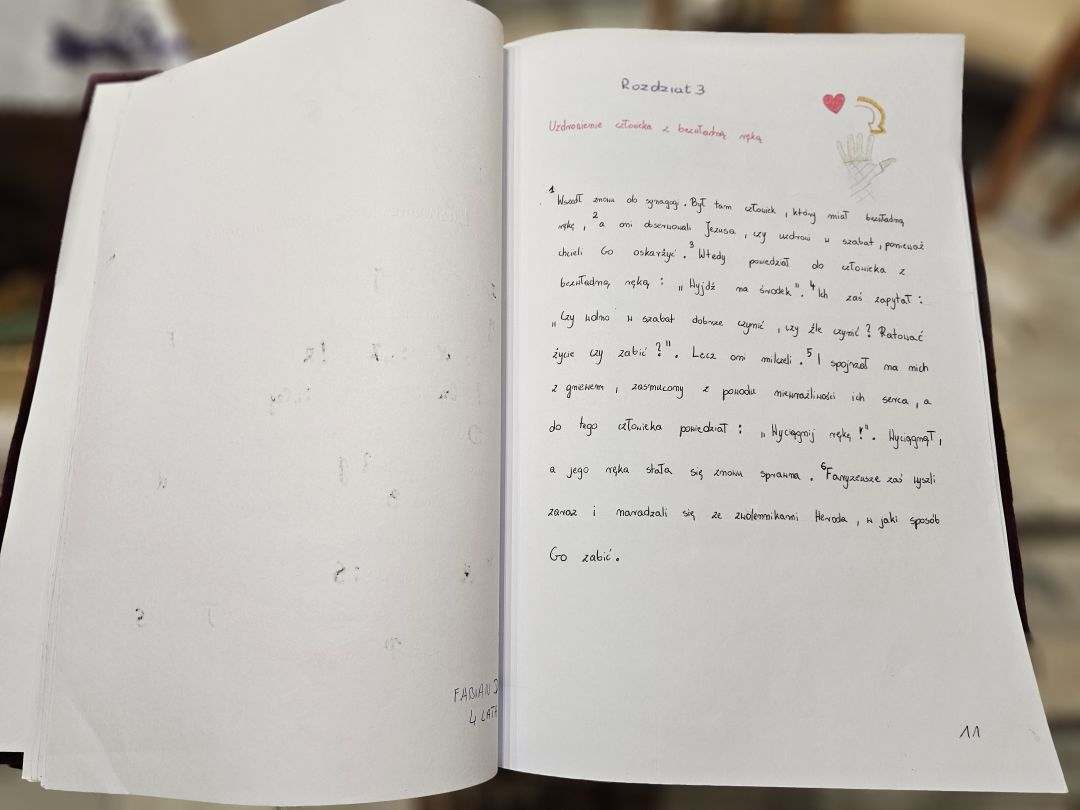 FABIAN
4 LATA
Rozdział 3
Uzdrowienie człowieka z bezwładną ręką
1 Wszedł znowu do synagogi. Był tam człowiek, który miał bezwładną
rękę, 2 a oni obserwowali Jezusa, czy uzdrowi w szabat, ponieważ
chcieli Go oskarżyć. 3 Wtedy powiedział do człowieka z
bezwładną ręką: „Wyjdź na środek". 4 Ich zaś zapytał:
„Czy wolno w szabat dobrze czynić, czy źle czynić? Ratować
życie czy zabić?". Lecz oni milczeli. 5 I spojrzał na nich
z gniewem, zasmucony z powodu niewrażliwości ich serca, a
do tego człowieka powiedział: „Wyciągnij rękę!". Wyciągnął,
a jego ręka stała się znowu sprawna. 6 Faryzeusze zaś wyszli
zaraz i naradzali się ze zwolennikami Heroda, w jaki sposób
Go zabić.
11